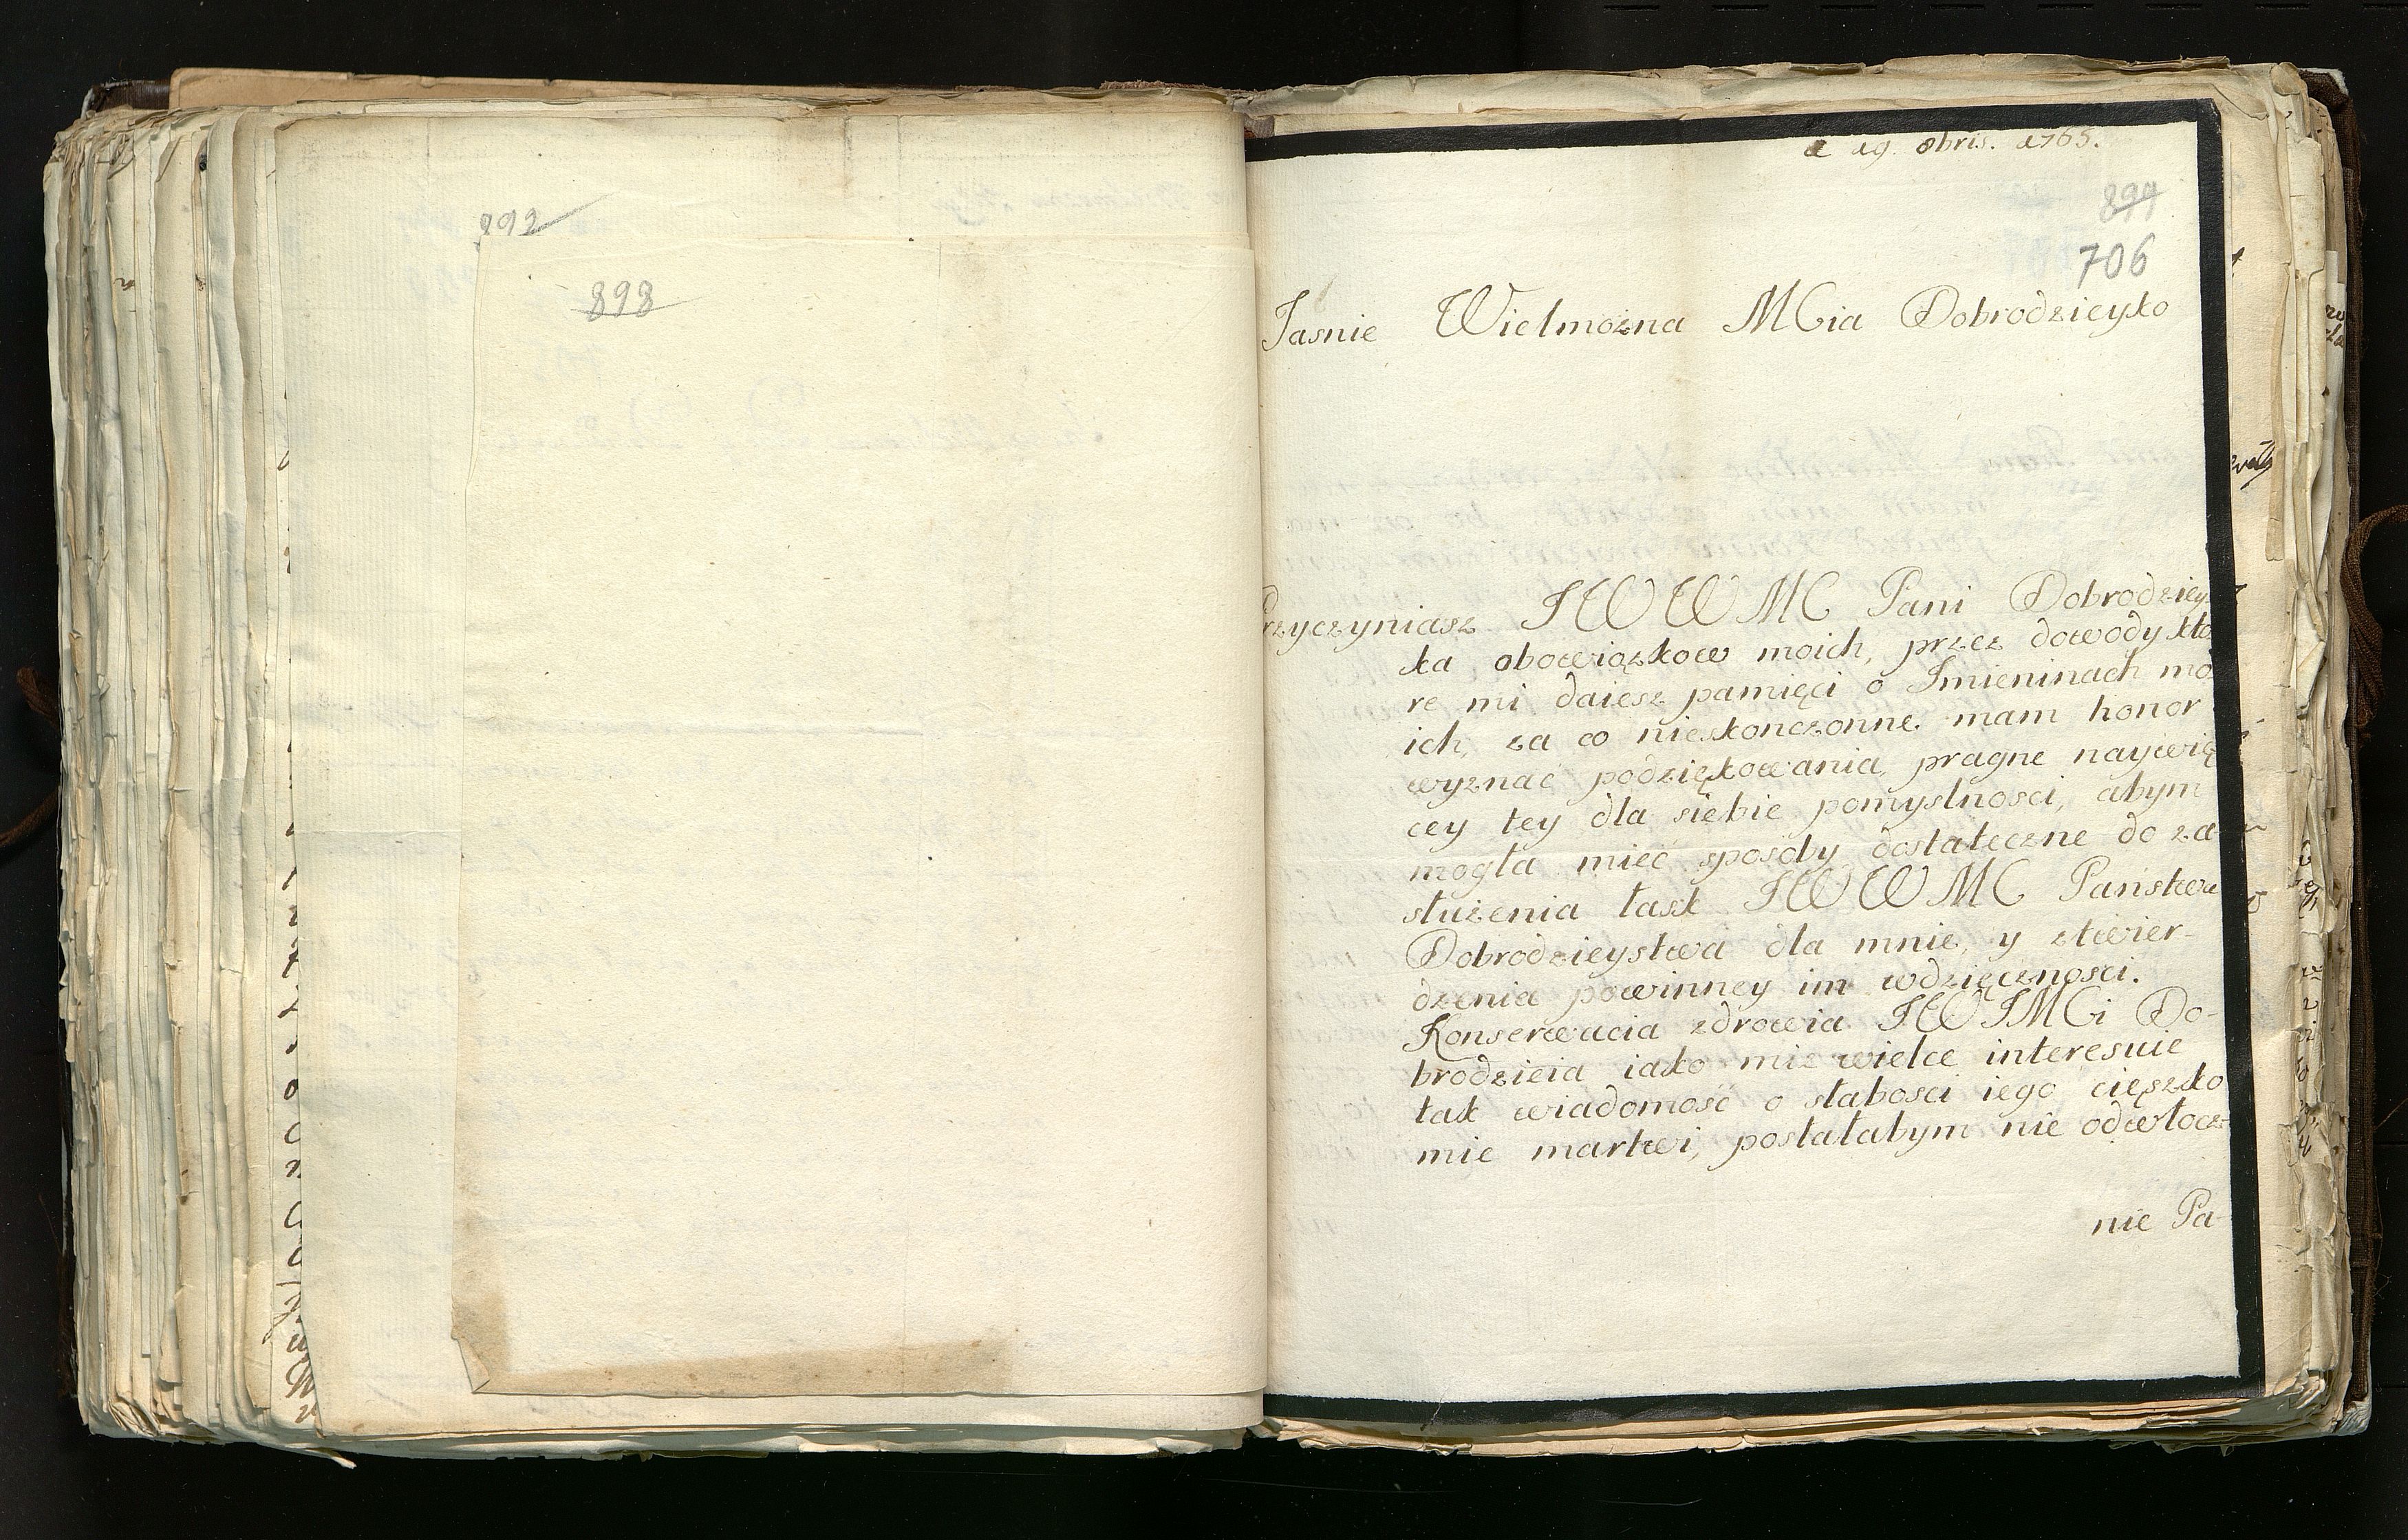 892
898
d 19. 8bris. 1765.
899
706
Jasnie Wielmożna MCia Dobrodzieyko
Przyczyniasz JWWMC Pani Dobrodziey
ka obowiązkow moich, przez dowody kto
re mi daiesz pamięci o Imieninach mo
ich, za co nieskonczonne mam honor
wyznać podziękowania, pragne naywię
cey tey dla siebie pomyslnosci, abym
mogła mieć sposoby dostateczne do za
służenia łask JWWMC Państwa
Dobrodzieystwa dla mnie, y ztwier-
dzenia powinney im wdzięcznosci.
Konserwacia zdrowia JWJMCi Do-
brodzieia iako mie wielce interesuie
tak wiadomość o słabosci iego cięszko
mie martwi, posłałabym nie odwłocz-
nie Pa-